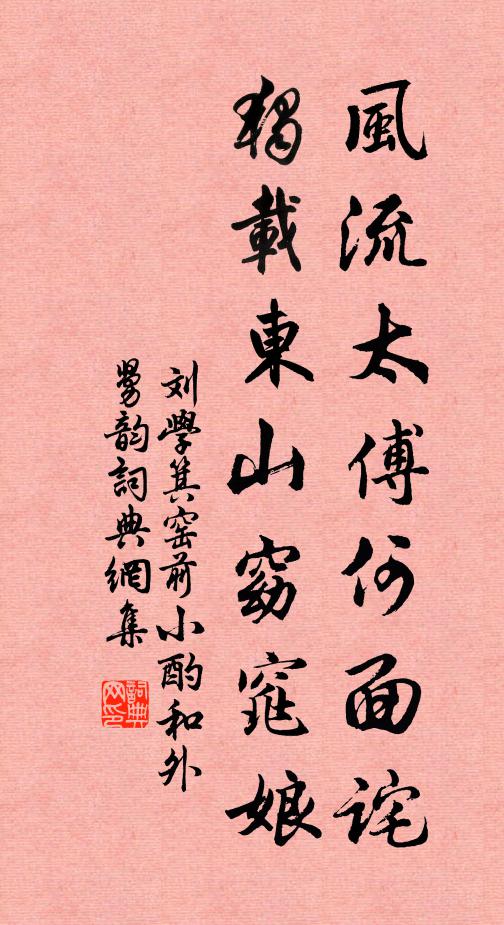 風流太傅何面詫
獨載東山窈窕娘
刘學箕窑前小酌和外
舅韵詞典網集
詞典网印